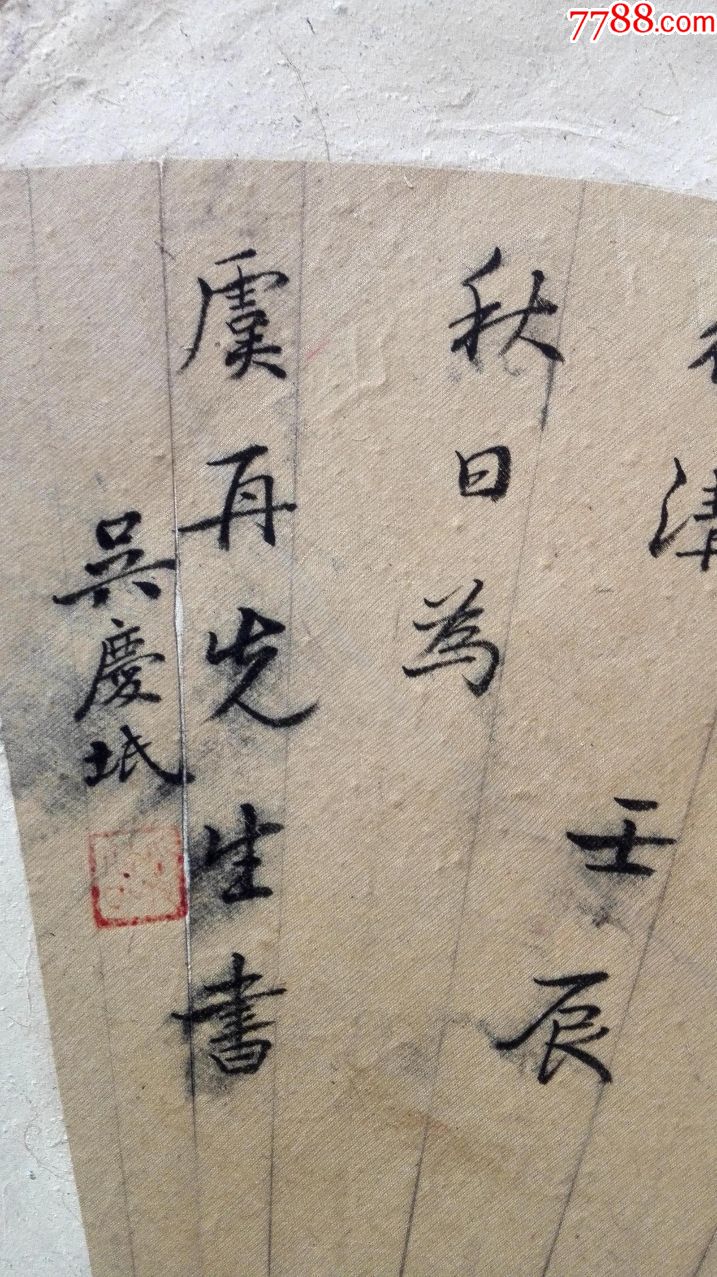 7788.com
溝壬辰
秋日為
虞再先生書
吳慶坻